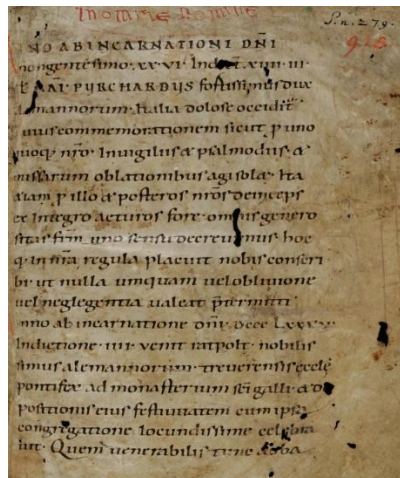 In nomine domini
P. n. 279.
9. S.
NO AB INCARNATIONI DNI
nongentesimo xx vi Indict xiiii iii
PURCHARDUS fortissimus dux
alemannorum Italia dolose occidit
uius commemorationem sicut p uno
quoq nro In uigiliis & psalmodiis &
missarum oblationibus agi solæ Ita
etiam p illo & posteros nros deinceps
ex Integro acturos fore omnis genero
sitas frm uno sensu decreuimus hoc
q in nra regula placuit nobis conscri
bi ut nulla umquam uel obliuione
uel neglegentia ualeat ptermitti
nno ab incarnatione dni dccc lxxxv
Indictione iii uenit ratpolt nobilis
simus alemannorum treuerensis eccle
pontifex ad monasterium sci galli & de
positionis eius festiuitatem cum ipsa
congregatione Iocundissime celebra
uit Quem uenerabilis tunc abba